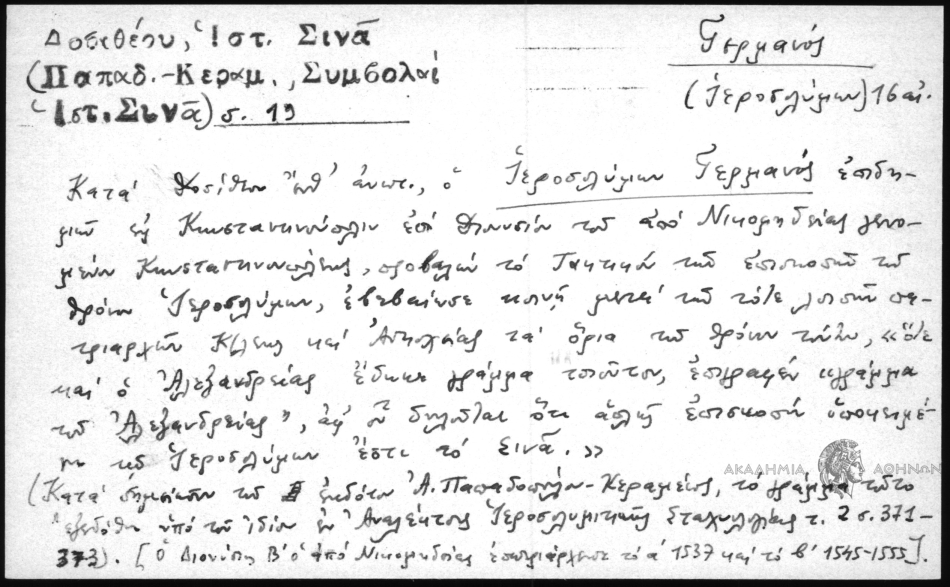 Δοσιθέου, Ἱστ. Σινᾶ
(Παπαδ.-Κεραμ., Συμβολαί
Ἱστ. Σινᾶ) σ. 19
Γερμανός
(Ἱεροσολύμων) 16 αἰ.
Κατά Δοσίθεον ἔνθ' ἀνωτ., ὁ Ἱεροσολύμων Γερμανός ἐπιδη-
μῶν εἰς Κωνσταντινούπολιν ἐπί Διονυσίου τοῦ ἀπό Νικομηδείας γενο-
μένου Κωνσταντινουπόλεως, προβαλών τό Τακτικόν τῶν ἐπισκοπῶν τοῦ
θρόνου Ἱεροσολύμων, ἐβεβαίωσε κοινῇ μετά τῶν τότε λοιπῶν πα-
τριαρχῶν Κ/λεως καί Ἀντιοχείας τά ὅρια τοῦ θρόνου τούτου, «ὅτε
καί ὁ Ἀλεξανδρείας ἔδωκε γράμμα τοιοῦτον, ἐπιγραφέν "γράμμα
τοῦ Ἀλεξανδρείας", ἀφ' οὗ δηλοῦται ὅτι ἁπλῆ ἐπισκοπή ὑποκειμέ-
νη τῶν Ἱεροσολύμων ἔστι τό Σινᾶ.»
(Κατά σημείωσιν τοῦ ἐκδότου Ἀ. Παπαδοπούλου-Κεραμέως, τό γράμμα τοῦτο
ἐξεδόθη ὑπό τοῦ ἰδίου ἐν Ἀναλέκτοις Ἱεροσολυμιτικῆς Σταχυολογίας τ. 2 σ. 371-
373). [Ὁ Διονύσιος Β' ὁ ἀπό Νικομηδείας ἐπατριάρχευσε τό α' 1537 καί τό β' 1545-1555].
ΑΚΑΔΗΜΙΑ ΑΘΗΝΩΝ